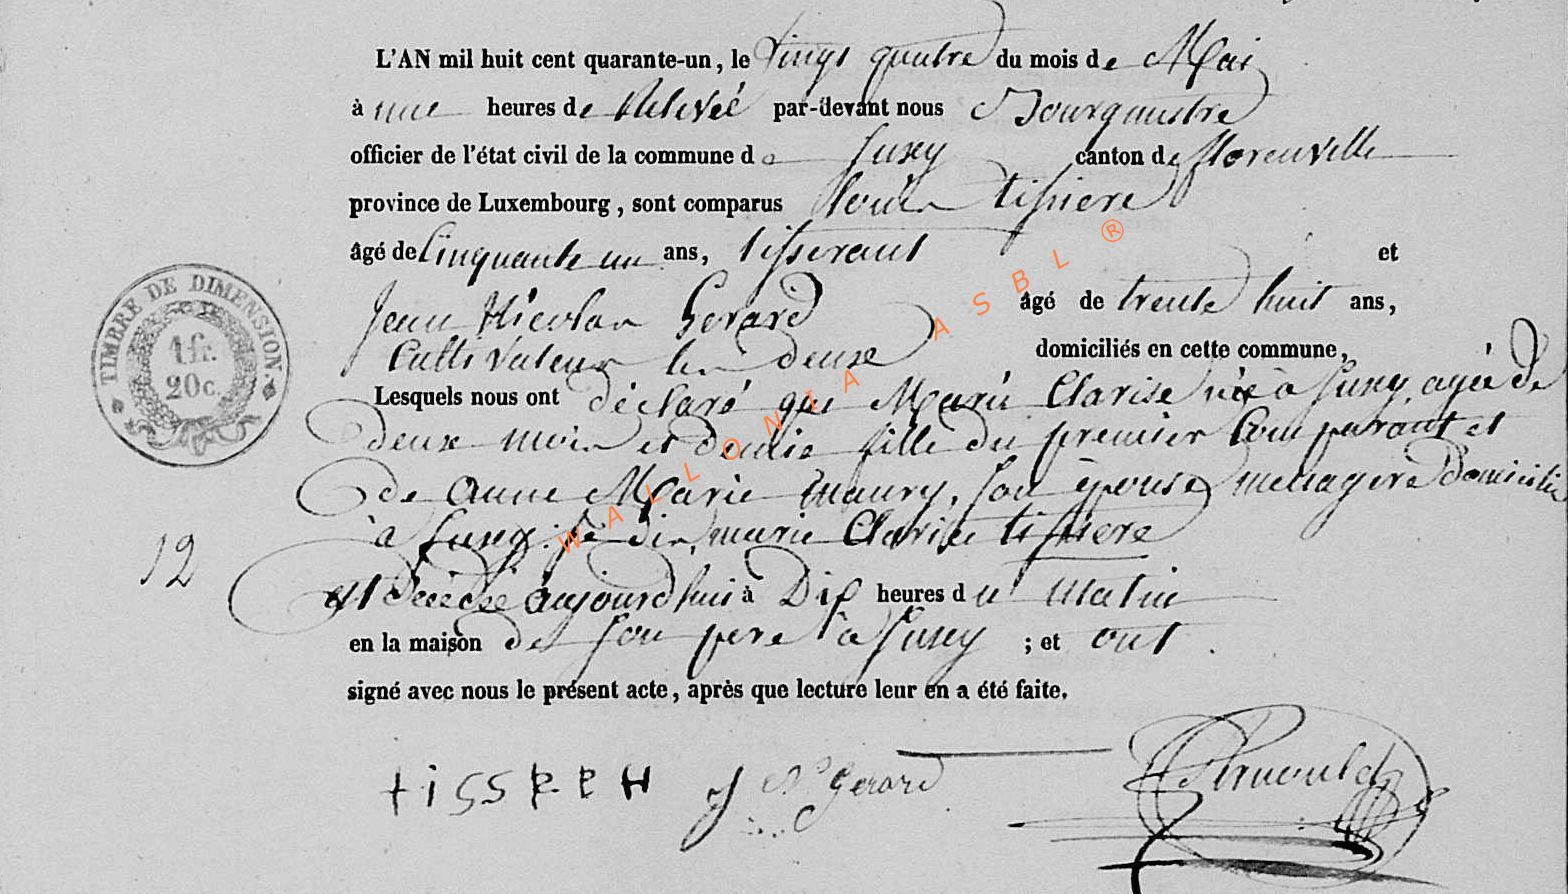 L'AN mil huit cent quarante-un, le vingt quatre du mois de Mai
à une heures de Relevée par-devant nous Bourgmestre
officier de l'état civil de la commune de Suxy canton de florenville
province de Luxembourg, sont comparus louis tissiere
âgé de Cinquante un ans, tisserant et
Jean Nicolas Gerard âgé de trente huit ans,
Cultivateur les deux domiciliés en cette commune,
Lesquels nous ont déclaré que Marie Clarise née à Suxy, agée de
deux mois et demie fille du premier Comparant et
de Anne Marie maury, son épouse menagere domiciliée
à Suxy: je dis, marie Clarise tissiere
12
est décédée aujourdhui à Dix heures du matin
en la maison de son pere à Suxy ; et ont
signé avec nous le présent acte, après que lecture leur en a été faite.
tiSSRRH J Ns Gerard
TIMBRE DE DIMENSION.
1 fr.
20 c.
WALLONIA ASBL ®